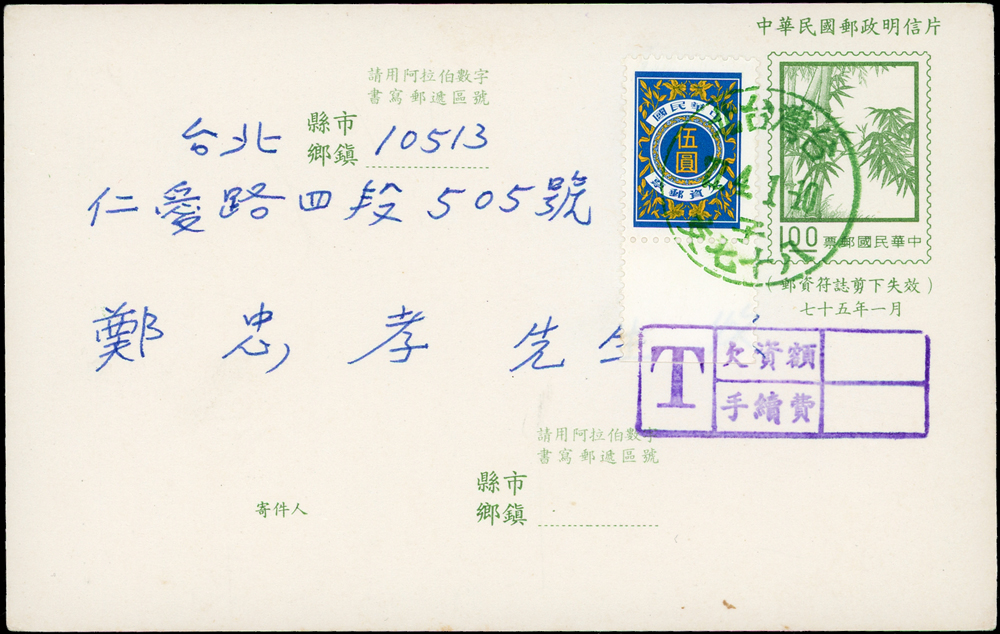 中華民國郵政明信片
請用阿拉伯數字
書寫郵遞區號
台北 縣市 鄉鎮 10513
仁愛路四段505號
鄭忠孝先生
中華民國
伍圓
欠資郵票
台灣
八十七
1.00 中華民國郵票
(郵資符誌剪下失效)
七十五年一月
T 欠資額
手續費
請用阿拉伯數字
書寫郵遞區號
縣市
鄉鎮
寄件人